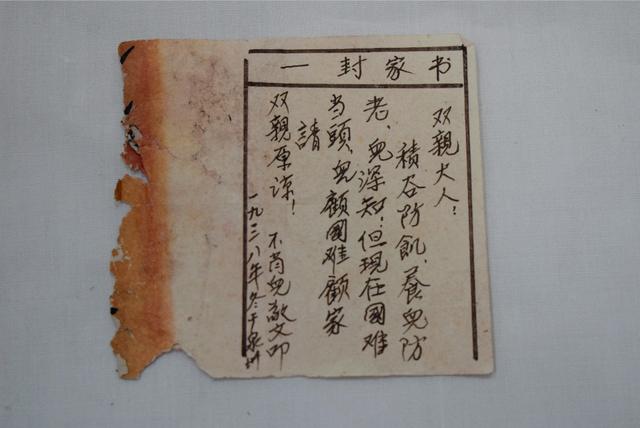 一封家书
双親大人：
積谷防飢、養兒防
老、兒深知；但現在國难
当頭、兒顧國难顧家
請
双親原諒！
不肖兒敬文叩
一九三八年冬于泉州